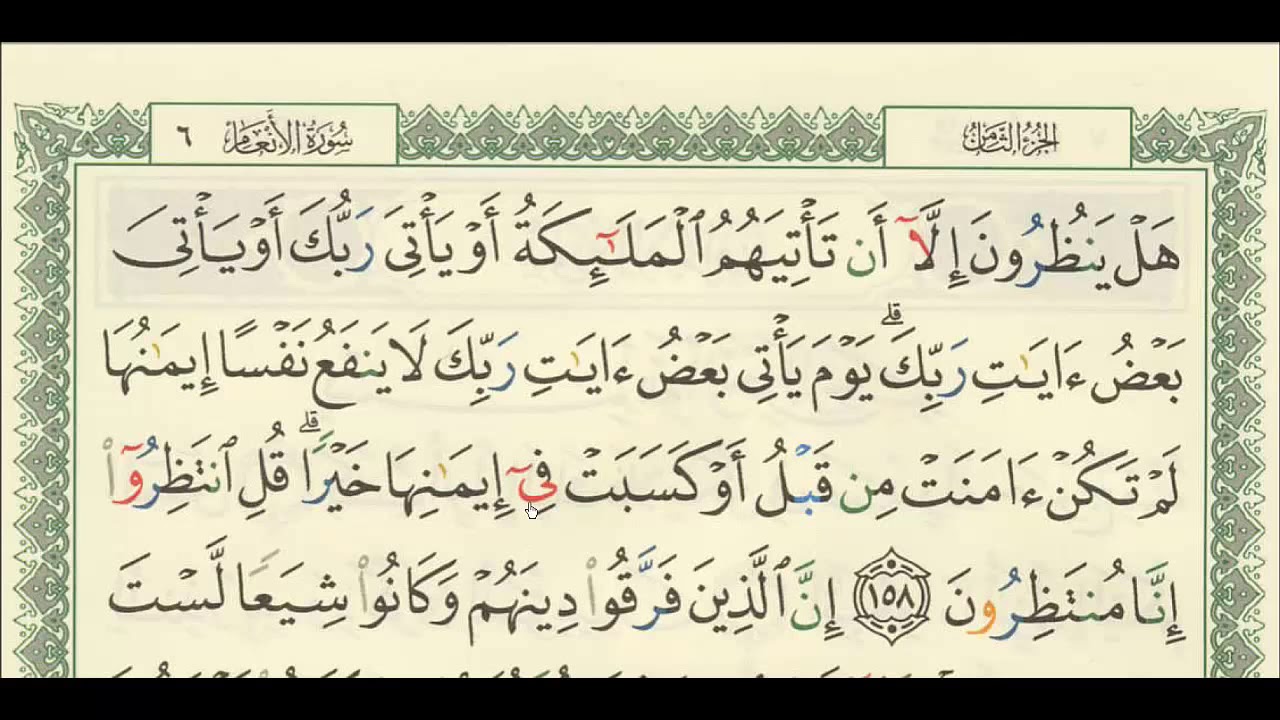 الجزء الثامن
سورة الأنعام ٦
هَلۡ يَنظُرُونَ إِلَّآ أَن تَأۡتِيَهُمُ ٱلۡمَلَٰٓئِكَةُ أَوۡ يَأۡتِىَ رَبُّكَ أَوۡ يَأۡتِىَ
بَعۡضُ ءَايَٰتِ رَبِّكَۗ يَوۡمَ يَأۡتِى بَعۡضُ ءَايَٰتِ رَبِّكَ لَا يَنفَعُ نَفۡسًا إِيمَٰنُهَا
لَمۡ تَكُنۡ ءَامَنَتۡ مِن قَبۡلُ أَوۡ كَسَبَتۡ فِىٓ إِيمَٰنِهَا خَيۡرًاۗ قُلِ ٱنتَظِرُوٓا۟
إِنَّا مُنتَظِرُونَ ١٥٨ إِنَّ ٱلَّذِينَ فَرَّقُوا۟ دِينَهُمۡ وَكَانُوا۟ شِيَعًا لَّسۡتَ